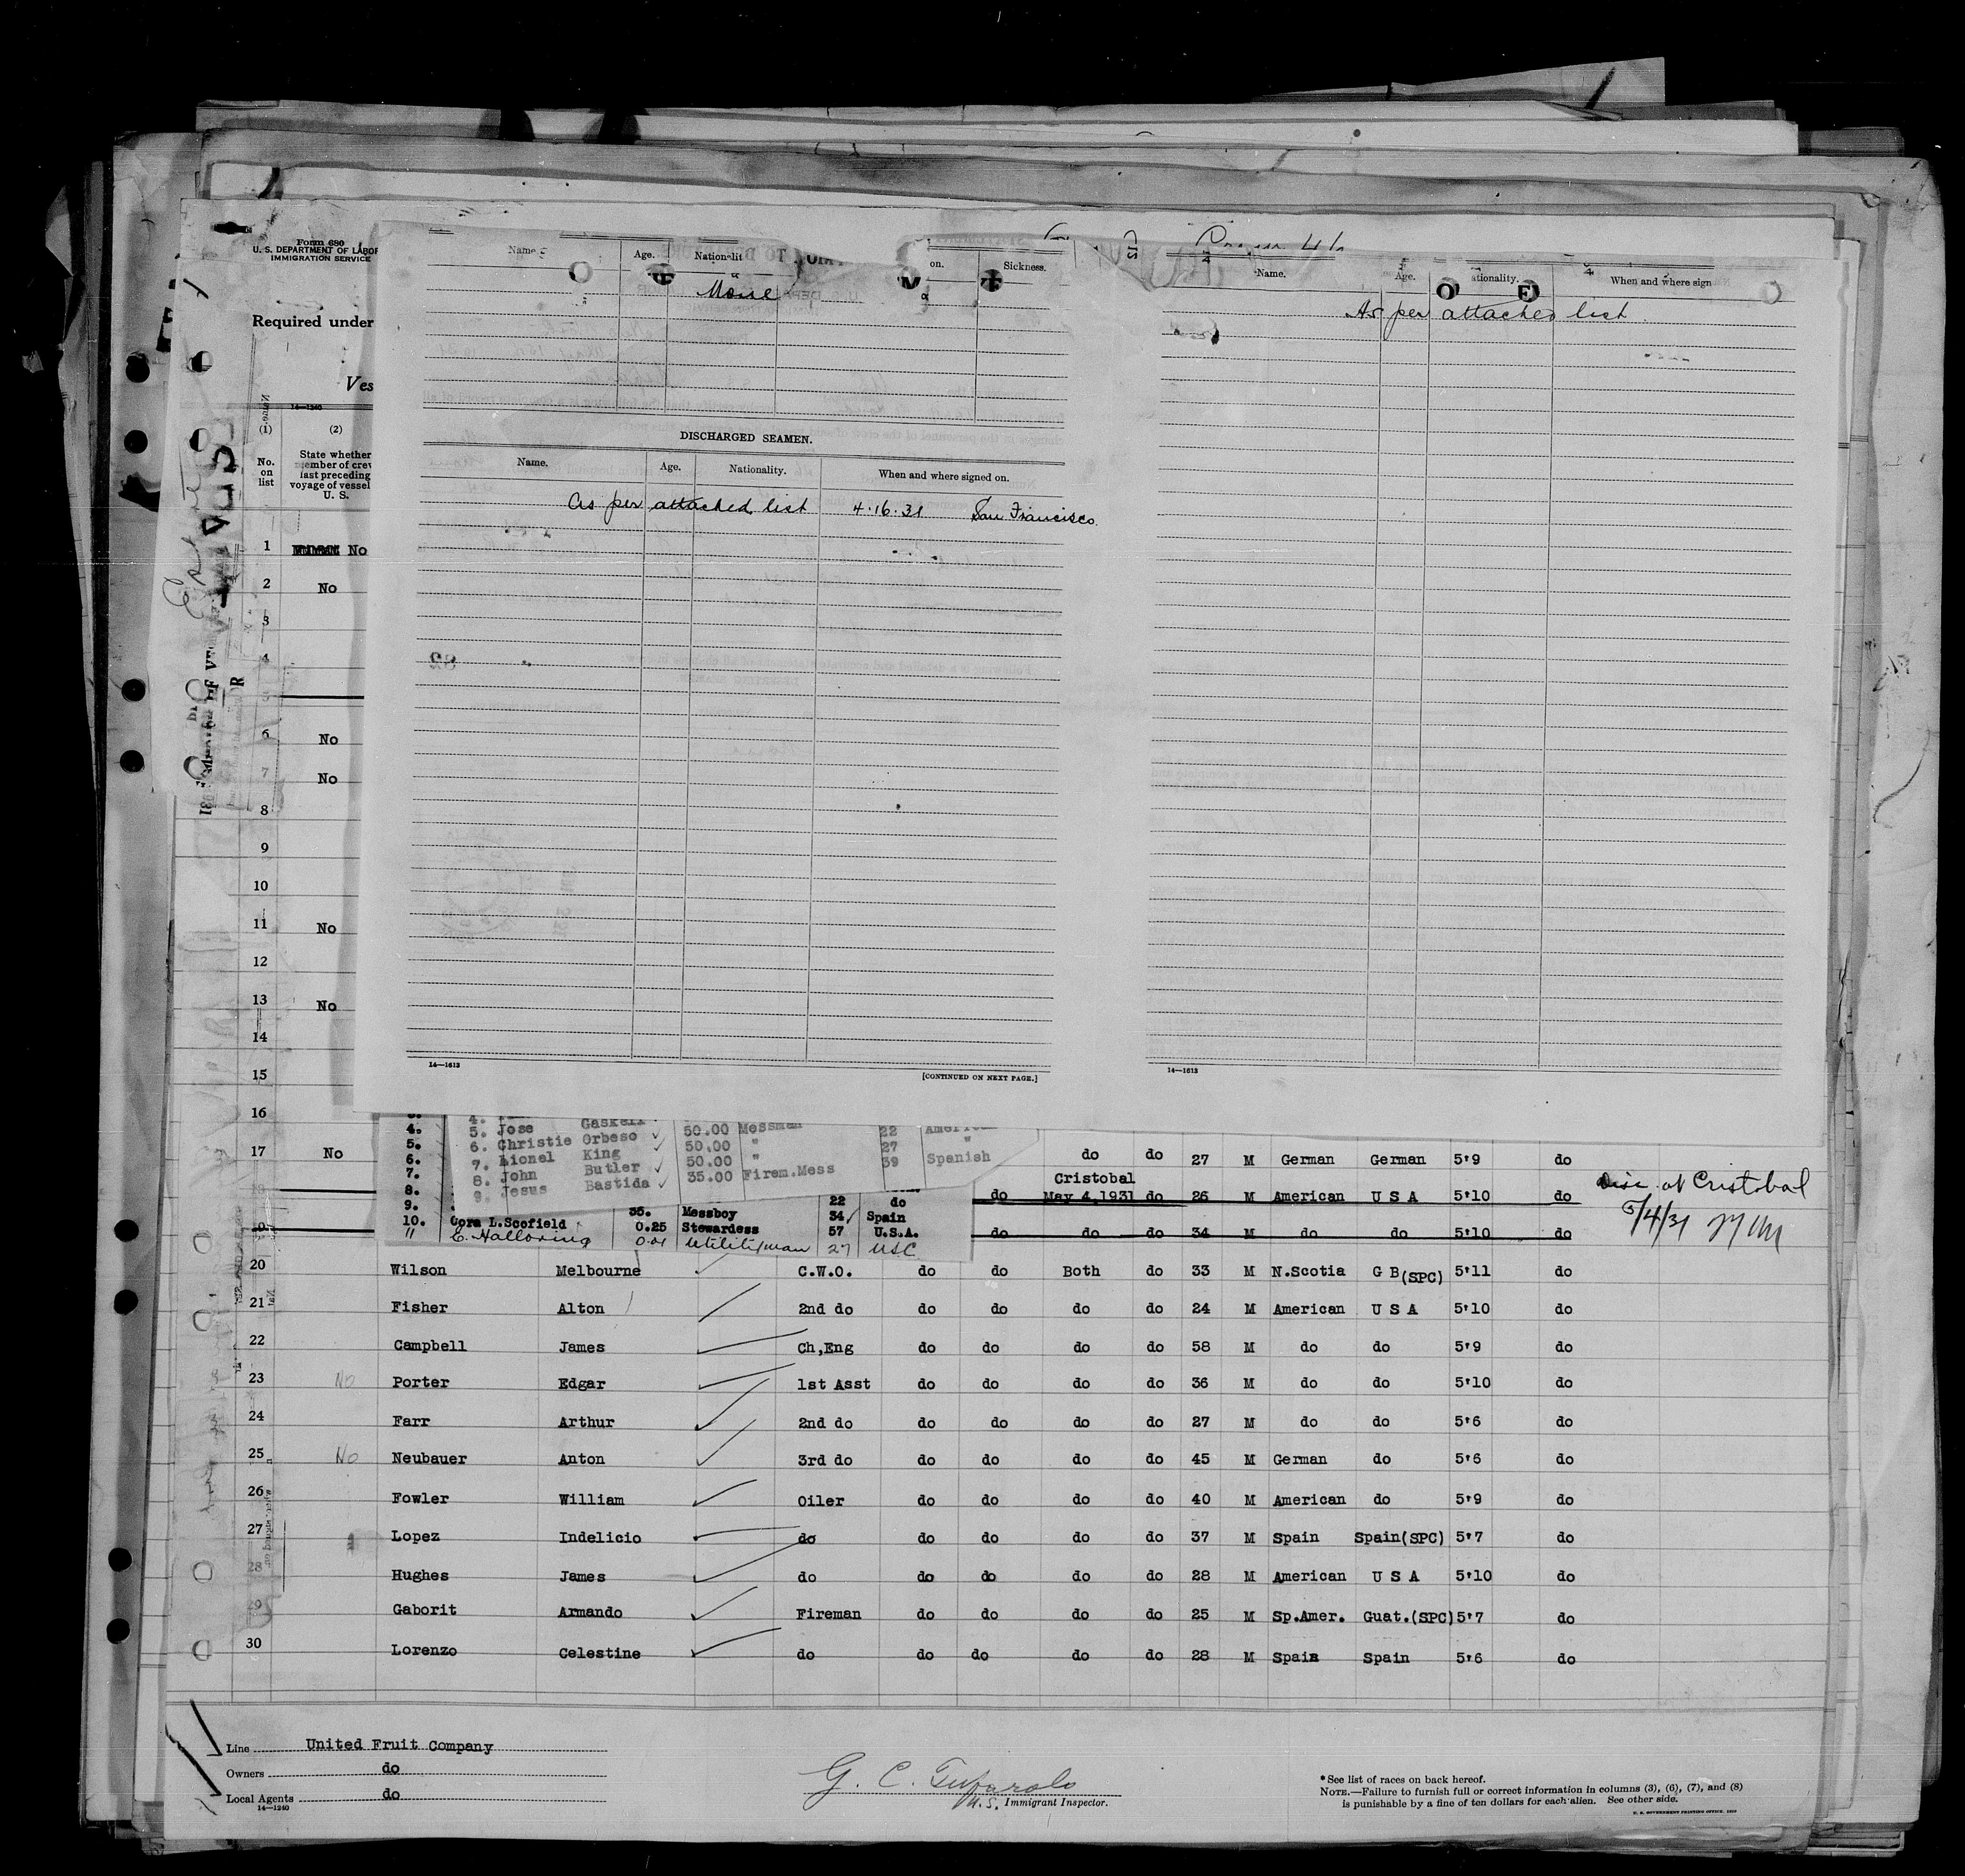 Form 680
U. S. DEPARTMENT OF LABOR
IMMIGRATION SERVICE
Required under
Ves
14—1240
(1) (2)
No. on list
State whether member of crew last preceding voyage of vessel U. S.
1 No
2 No
3
4
5
6 No
7 No
8
9
10
11 No
12
13 No
14
15
16
17 No
Name. Age. Nationalit on. Sickness.
None
DISCHARGED SEAMEN.
Name. Age. Nationality. When and where signed on.
As per attached list 4-16-31 San Francisco
14—1613
[CONTINUED ON NEXT PAGE.]
Name. Age. ationality. When and where sign
As per attached list
14—1613
4.
5. Jose Gaskell 50.00 Messman 22 American
6. Christie Orbeso 50.00 " 27 "
7. Lionel King 50.00 " 39 Spanish
8. John Butler 35.00 Firem.Mess
9. Jesus Bastida
3.
4.
5.
6.
7.
8. 22 do
9. 35. Messboy 34 Spain
10. Cora L.Scofield 0.25 Stewardess 57 U.S.A.
11 E. Halloring 0.01 Utilityman 27 USC
do do 27 M German German 5'9 do
Cristobal
do May 4,1931 do 26 M American U S A 5'10 do
Disc. at Cristobal
5/4/31
do do do 34 M do do 5'10 do
20 Wilson Melbourne C.W.O. do do Both do 33 M N.Scotia G B(SPC) 5'11 do
21 Fisher Alton 2nd do do do do do 24 M American U S A 5'10 do
22 Campbell James Ch,Eng do do do do 58 M do do 5'9 do
23 No Porter Edgar 1st Asst do do do do 36 M do do 5'10 do
24 Farr Arthur 2nd do do do do do 27 M do do 5'6 do
25 No Neubauer Anton 3rd do do do do do 45 M German do 5'6 do
26 Fowler William Oiler do do do do 40 M American do 5'9 do
27 Lopez Indelicio do do do do do 37 M Spain Spain(SPC) 5'7 do
28 Hughes James do do do do do 28 M American U S A 5'10 do
29 Gaborit Armando Fireman do do do do 25 M Sp.Amer. Guat.(SPC) 5'7 do
30 Lorenzo Celestine do do do do do 28 M Spain Spain 5'6 do
Line United Fruit Company
Owners do
Local Agents do
14—1240
G. C.
U.S. Immigrant Inspector.
*See list of races on back hereof.
NOTE.—Failure to furnish full or correct information in columns (3), (6), (7), and (8)
is punishable by a fine of ten dollars for each alien. See other side.
U. S. GOVERNMENT PRINTING OFFICE